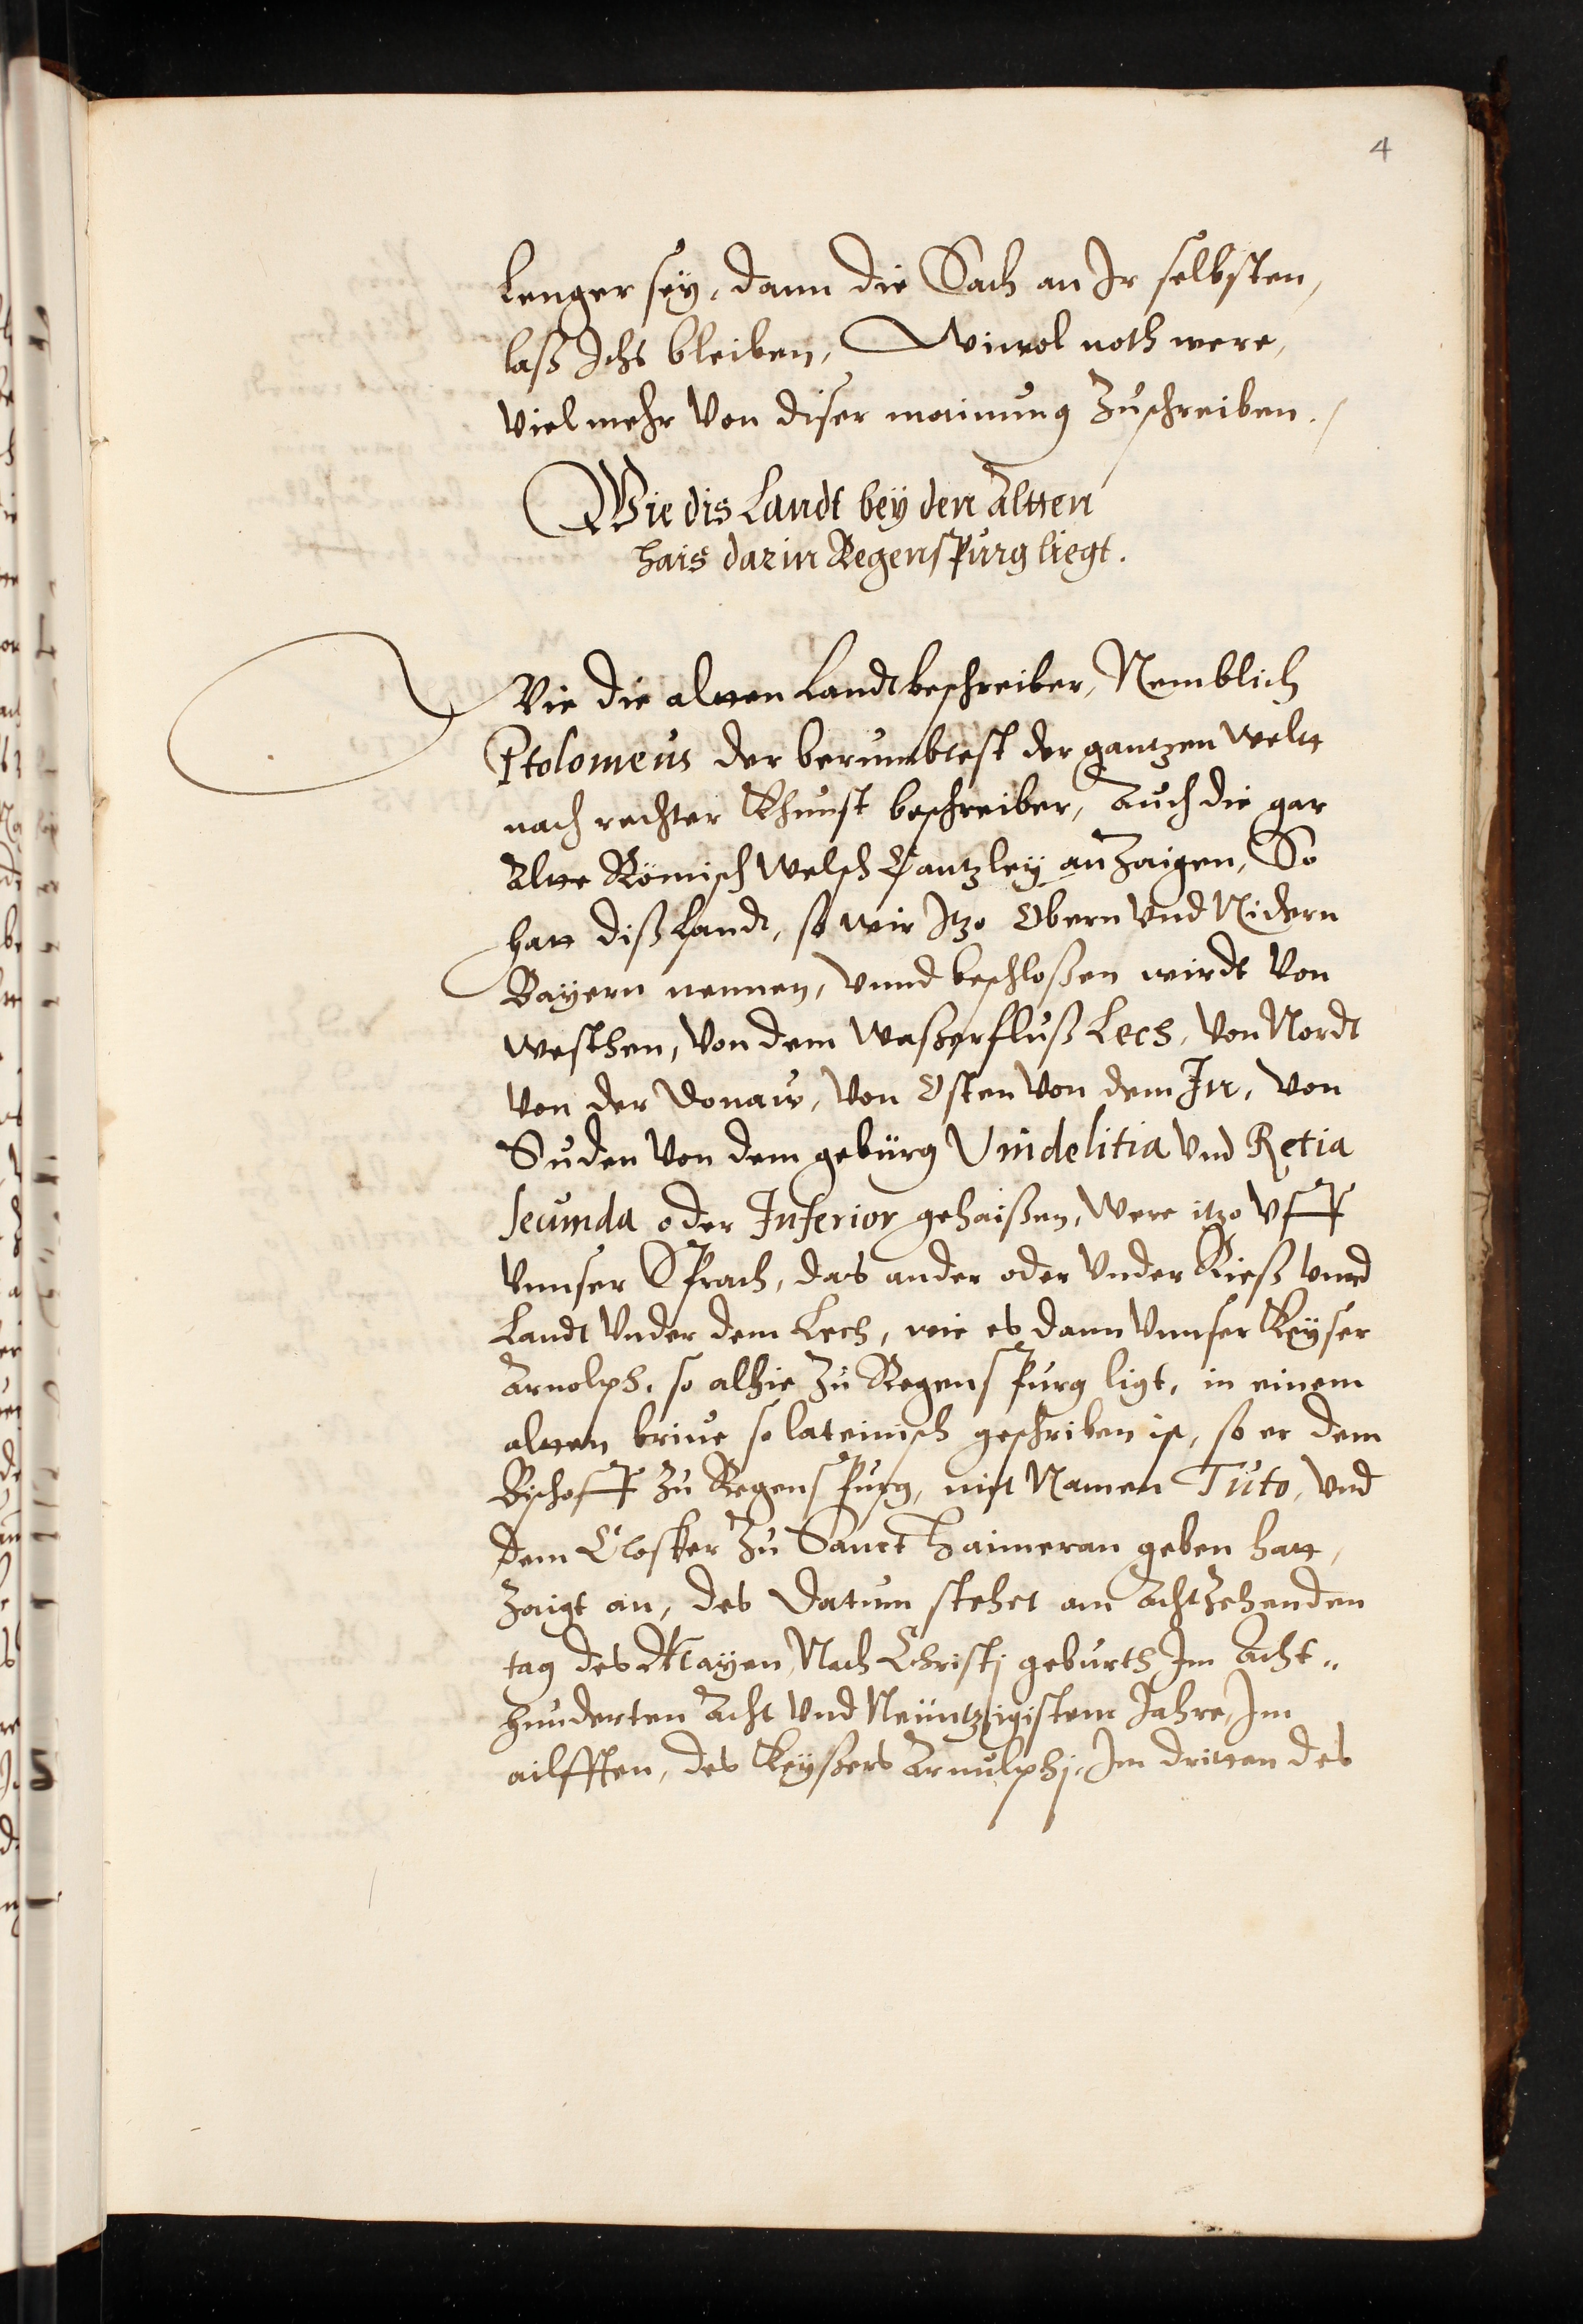 4
lenger seÿ, dann die Sach an Ir selbsten,
laß Ichs bleiben, Wiewol noth were,
viel mehr von diser mainung Zuschreiben.
Wie dis Landt beÿ den Altten
hais darin Regenspurg liegt.
Wie die altten Landtbeschreiber, Nemblich
Ptolomeus der berumbtest der gantzen weltt
nach rechter Khunst beschreiber, Auch die gar
Altte Römisch Welsch Cantzleÿ anZaigen, So
hatt diß Landt, so wir Itzo Obern vnd Nidern
Baÿern nennen, vnnd beschloßen wirdt von
westhen, von dem waßerfluß Lech, von Nordt
von der Donaw, von Osten von dem In, von
Suden von dem gebürg Vindelitia vnd Retia
secunda oder Inferior gehaißen, were itzo vff
vnnser Sprach, das ander oder vnder Rieß vnnd
Landt vnder dem Lech, wie es dann vnnser Keÿser
Arnolph, so alhie Zu Regenspurg ligt, in einem
altten brive so lateinisch geschriben ist, so er dem
Bischoff Zu Regenspurg, mit Namen Tuto, vnd
dem Closter Zu Sanct Haimeran geben hatt,
Zaigt an, des Datum stehet am AchtZehenden
tag des Maÿen, Nach Christj geburth Im Acht„
hunderten Acht vnd Neuntzigistem Jahre, Im
ailfften, des Keÿßers Arnulphj, Im dritten des